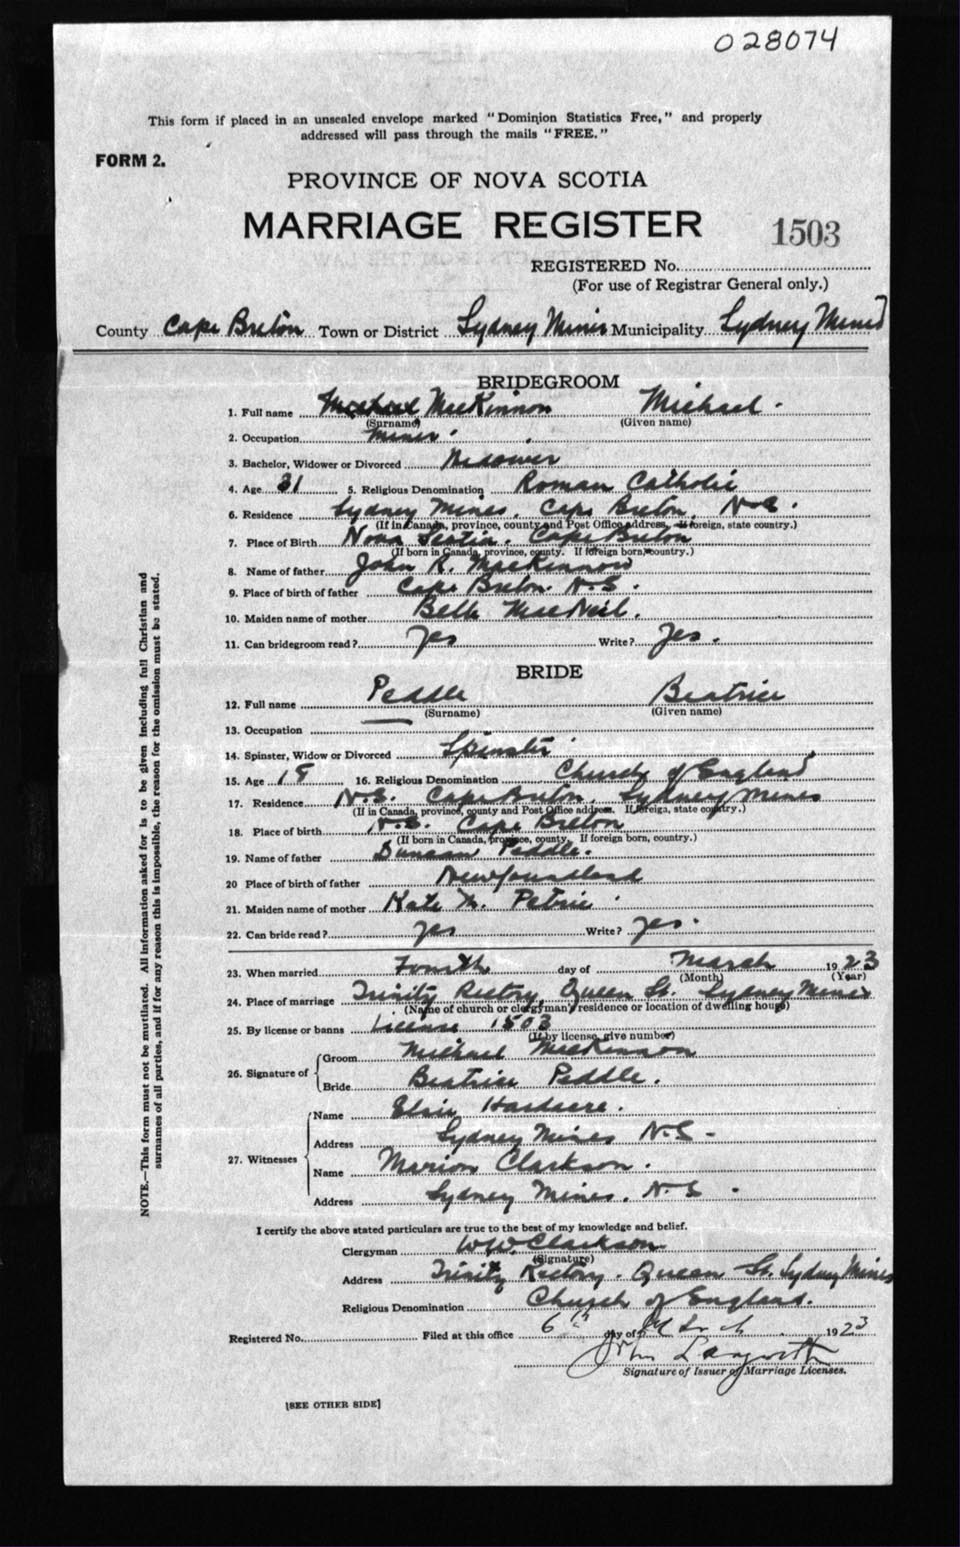 028074
This form if placed in an unsealed envelope marked "Dominion Statistics Free," and properly
addressed will pass through the mails "FREE."
FORM 2.
PROVINCE OF NOVA SCOTIA
MARRIAGE REGISTER 1503
REGISTERED No.
(For use of Registrar General only.)
County Cape Breton Town or District Sydney Mines Municipality Sydney Mines
BRIDEGROOM
1. Full name MacKinnon Michael.
(Surname) (Given name)
2. Occupation Miner.
3. Bachelor, Widower or Divorced Widower
4. Age 31 5. Religious Denomination Roman Catholic
6. Residence Sydney Mines, Cape Breton, N.S.
(If in Canada, province, county and Post Office address. If foreign, state country.)
7. Place of Birth Nova Scotia. Cape Breton
(If born in Canada, province, county. If foreign born, country.)
8. Name of father John R. MacKinnon
9. Place of birth of father Cape Breton. N.S.
10. Maiden name of mother Belle MacNeil.
11. Can bridegroom read? Yes Write? Yes.
BRIDE
12. Full name Peddle Beatrice
(Surname) (Given name)
13. Occupation
14. Spinster, Widow or Divorced Spinster
15. Age 18 16. Religious Denomination Church of England
17. Residence N.S. Cape Breton, Sydney Mines
(If in Canada, province, county and Post Office address. If foreign, state country.)
18. Place of birth N.S. Cape Breton
(If born in Canada, province, county. If foreign born, country.)
19. Name of father Duncan Peddle.
20 Place of birth of father Newfoundland
21. Maiden name of mother Kate M. Petrie
22. Can bride read? Yes Write? Yes.
23. When married Fourth day of March 1923
(Month) (Year)
24. Place of marriage Trinity Rectory, Queen St. Sydney Mines
(Name of church or clergyman's residence or location of dwelling house)
25. By license or banns License 1503
(If by license, give number)
26. Signature of Groom Michael MacKinnon
Bride Beatrice Peddle.
27. Witnesses Name Elsie Hardacre.
Address Sydney Mines N.S.
Name Marion Clarkson.
Address Sydney Mines, N.S.
I certify the above stated particulars are true to the best of my knowledge and belief.
Clergyman W.W. Clarkson
(Signature)
Address Trinity Rectory. Queen St. Sydney Mines
Religious Denomination Church of England.
Registered No. Filed at this office 6th day of March 1923
John Langwith
Signature of Issuer of Marriage Licenses.
[SEE OTHER SIDE]
NOTE.—This form must not be mutilated. All information asked for is to be given including full Christian and
surnames of all parties, and if for any reason this is impossible, the reason for the omission must be stated.